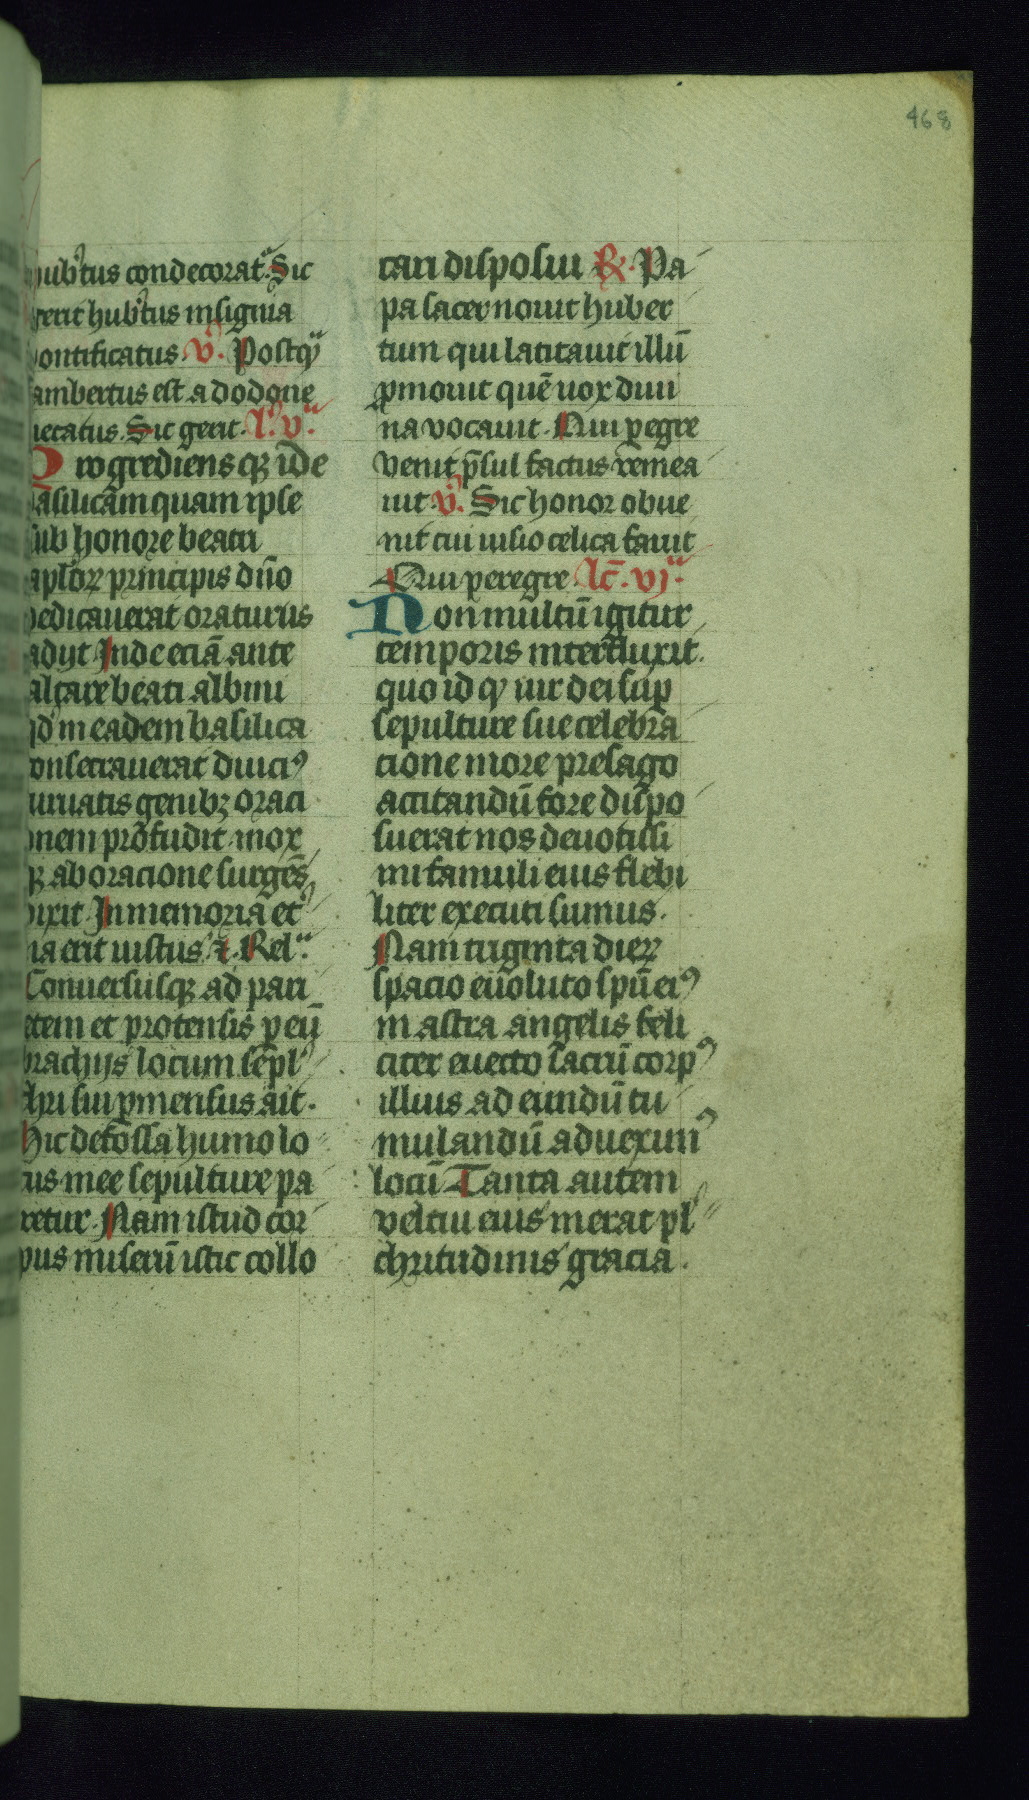 468
hub'tus condecorat'. Sic
gerit hub'tus insignia
pontificatus. v̓. Postq̄
lambertus est a dodone
necatus. Sic gerit. l'. v.ᵃ
Progrediens qꝫ ide
basilicam quam ipse
sub honore beati
apl'oꝝ principis dn̄o
dedicauerat oraturus
adijt Inde eciā ante
altare beati albini
qd' in eadem basilica
consecrauerat diuciꝰ
curuatis genibꝫ oraci
onem profudit mox
qꝫ ab oracione surgēs
dixit. In memoria et'
na erit iustus ⁊. Rel.ᵃ
Conuersusqꝫ ad pari
etem et protensis p eū
brachijs locum sepl'
chri sui ꝑmensus ait.
Hic defossa humo lo
cus mee sepulture pa
retur. Nam istud cor
pus miserū istic collo
cari disposui ℟. Pa
pa sacer nouit huber
tun qui latitauit illū
ꝓmouit quē uox diui
na vocauit. Qui ꝑegre
venit p̄sul factus remea
uit. v̓. Sic honor obue
nit cui uisio celica fauit
Qui peregre. lc̄. vjᵃ.
Non multū igitur
temporis interfluxit.
quo id qꝫ uir dei suꝑ
sepulture sue celebra
cione more presago
actitandū fore dispo
suerat nos deuotissi
mi famuli eius flebi
liter executi sumus.
Nam triginta dieꝝ
spacio euoluto spū eiꝰ
in astra angelis feli
citer euecto sacrū corpꝰ
illius ad eundū tu
mulandū aduexunꝰ
locū Tanta autem
veltiu eius inerat pl'
chritudinis gracia.